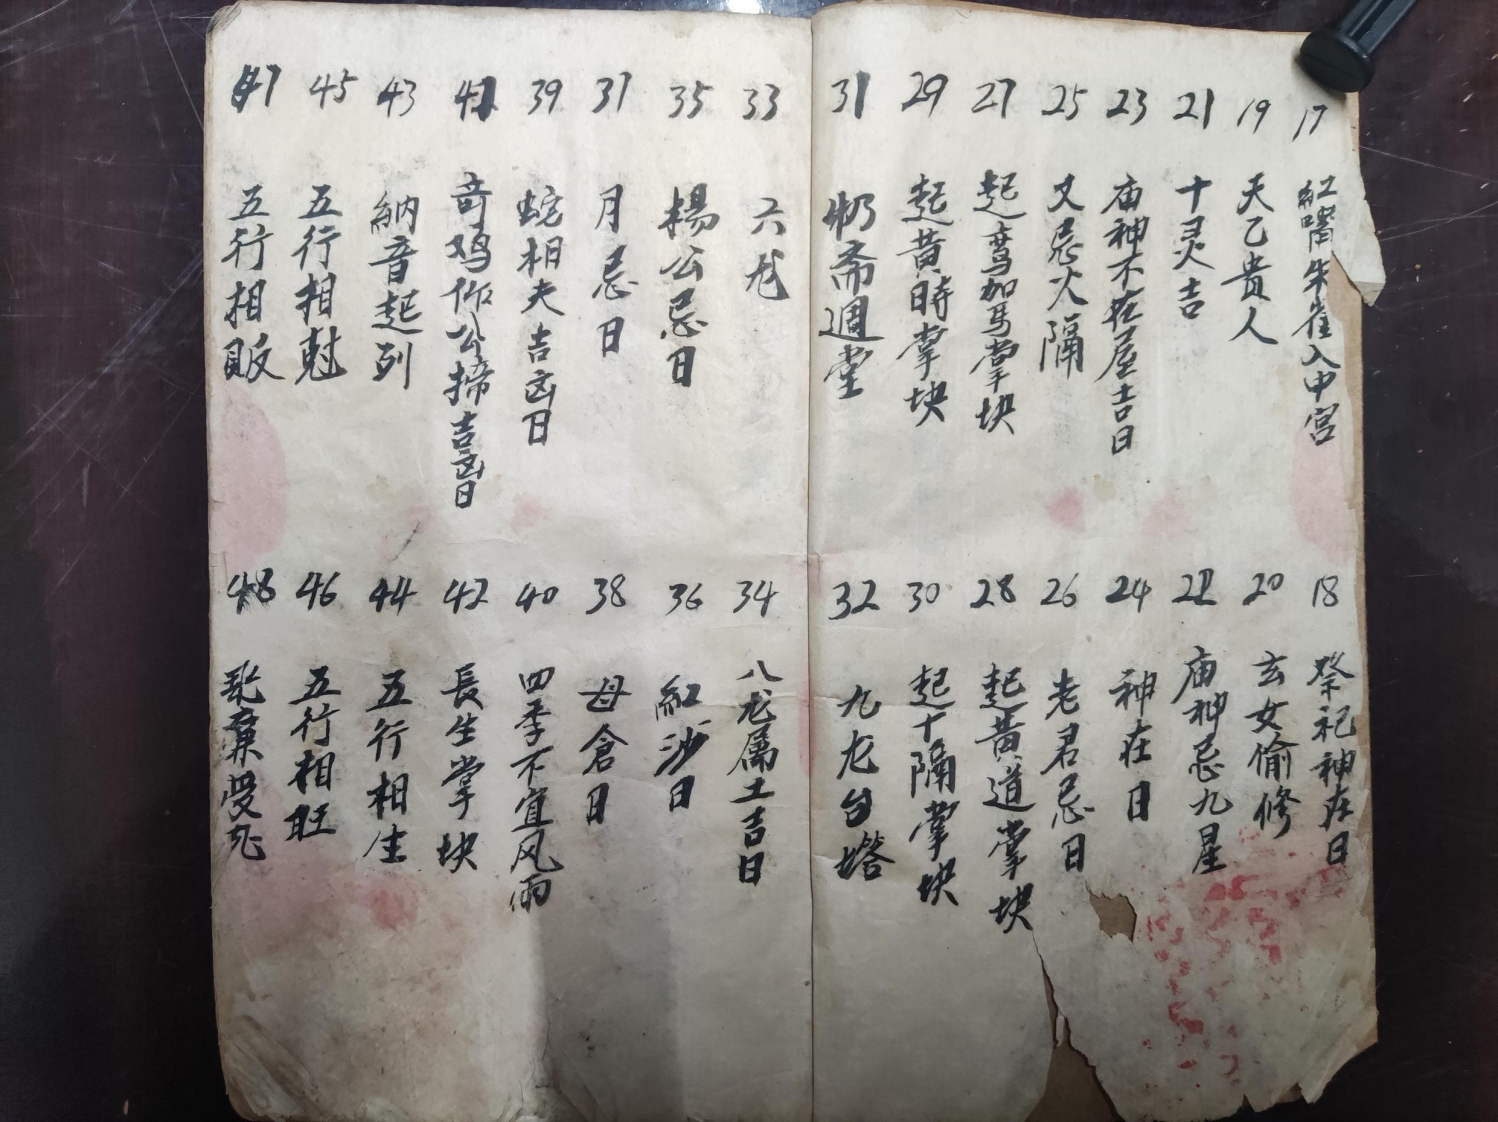 17 紅嘴朱雀入中宮
18 祭祀神在日
19 天乙貴人
20 玄女偷修
21 十灵吉
22 庙神忌九星
23 庙神不在屋吉日
24 神在日
25 又忌火隔
26 老君忌日
27 起鸾加馬掌块
28 起黃道掌块
29 起黃時掌块
30 起十隔掌块
31 斋週堂
32 九尨台塔
33 六尨
34 八尨属土吉日
35 楊公忌日
36 紅沙日
37 月忌日
38 母倉日
39 蛇相夫吉凶日
40 四季不宜风雨
41 竒鸡作公掃吉凶日
42 長生掌块
43 納音起列
44 五行相生
45 五行相尅
46 五行相旺
47 五行相
48